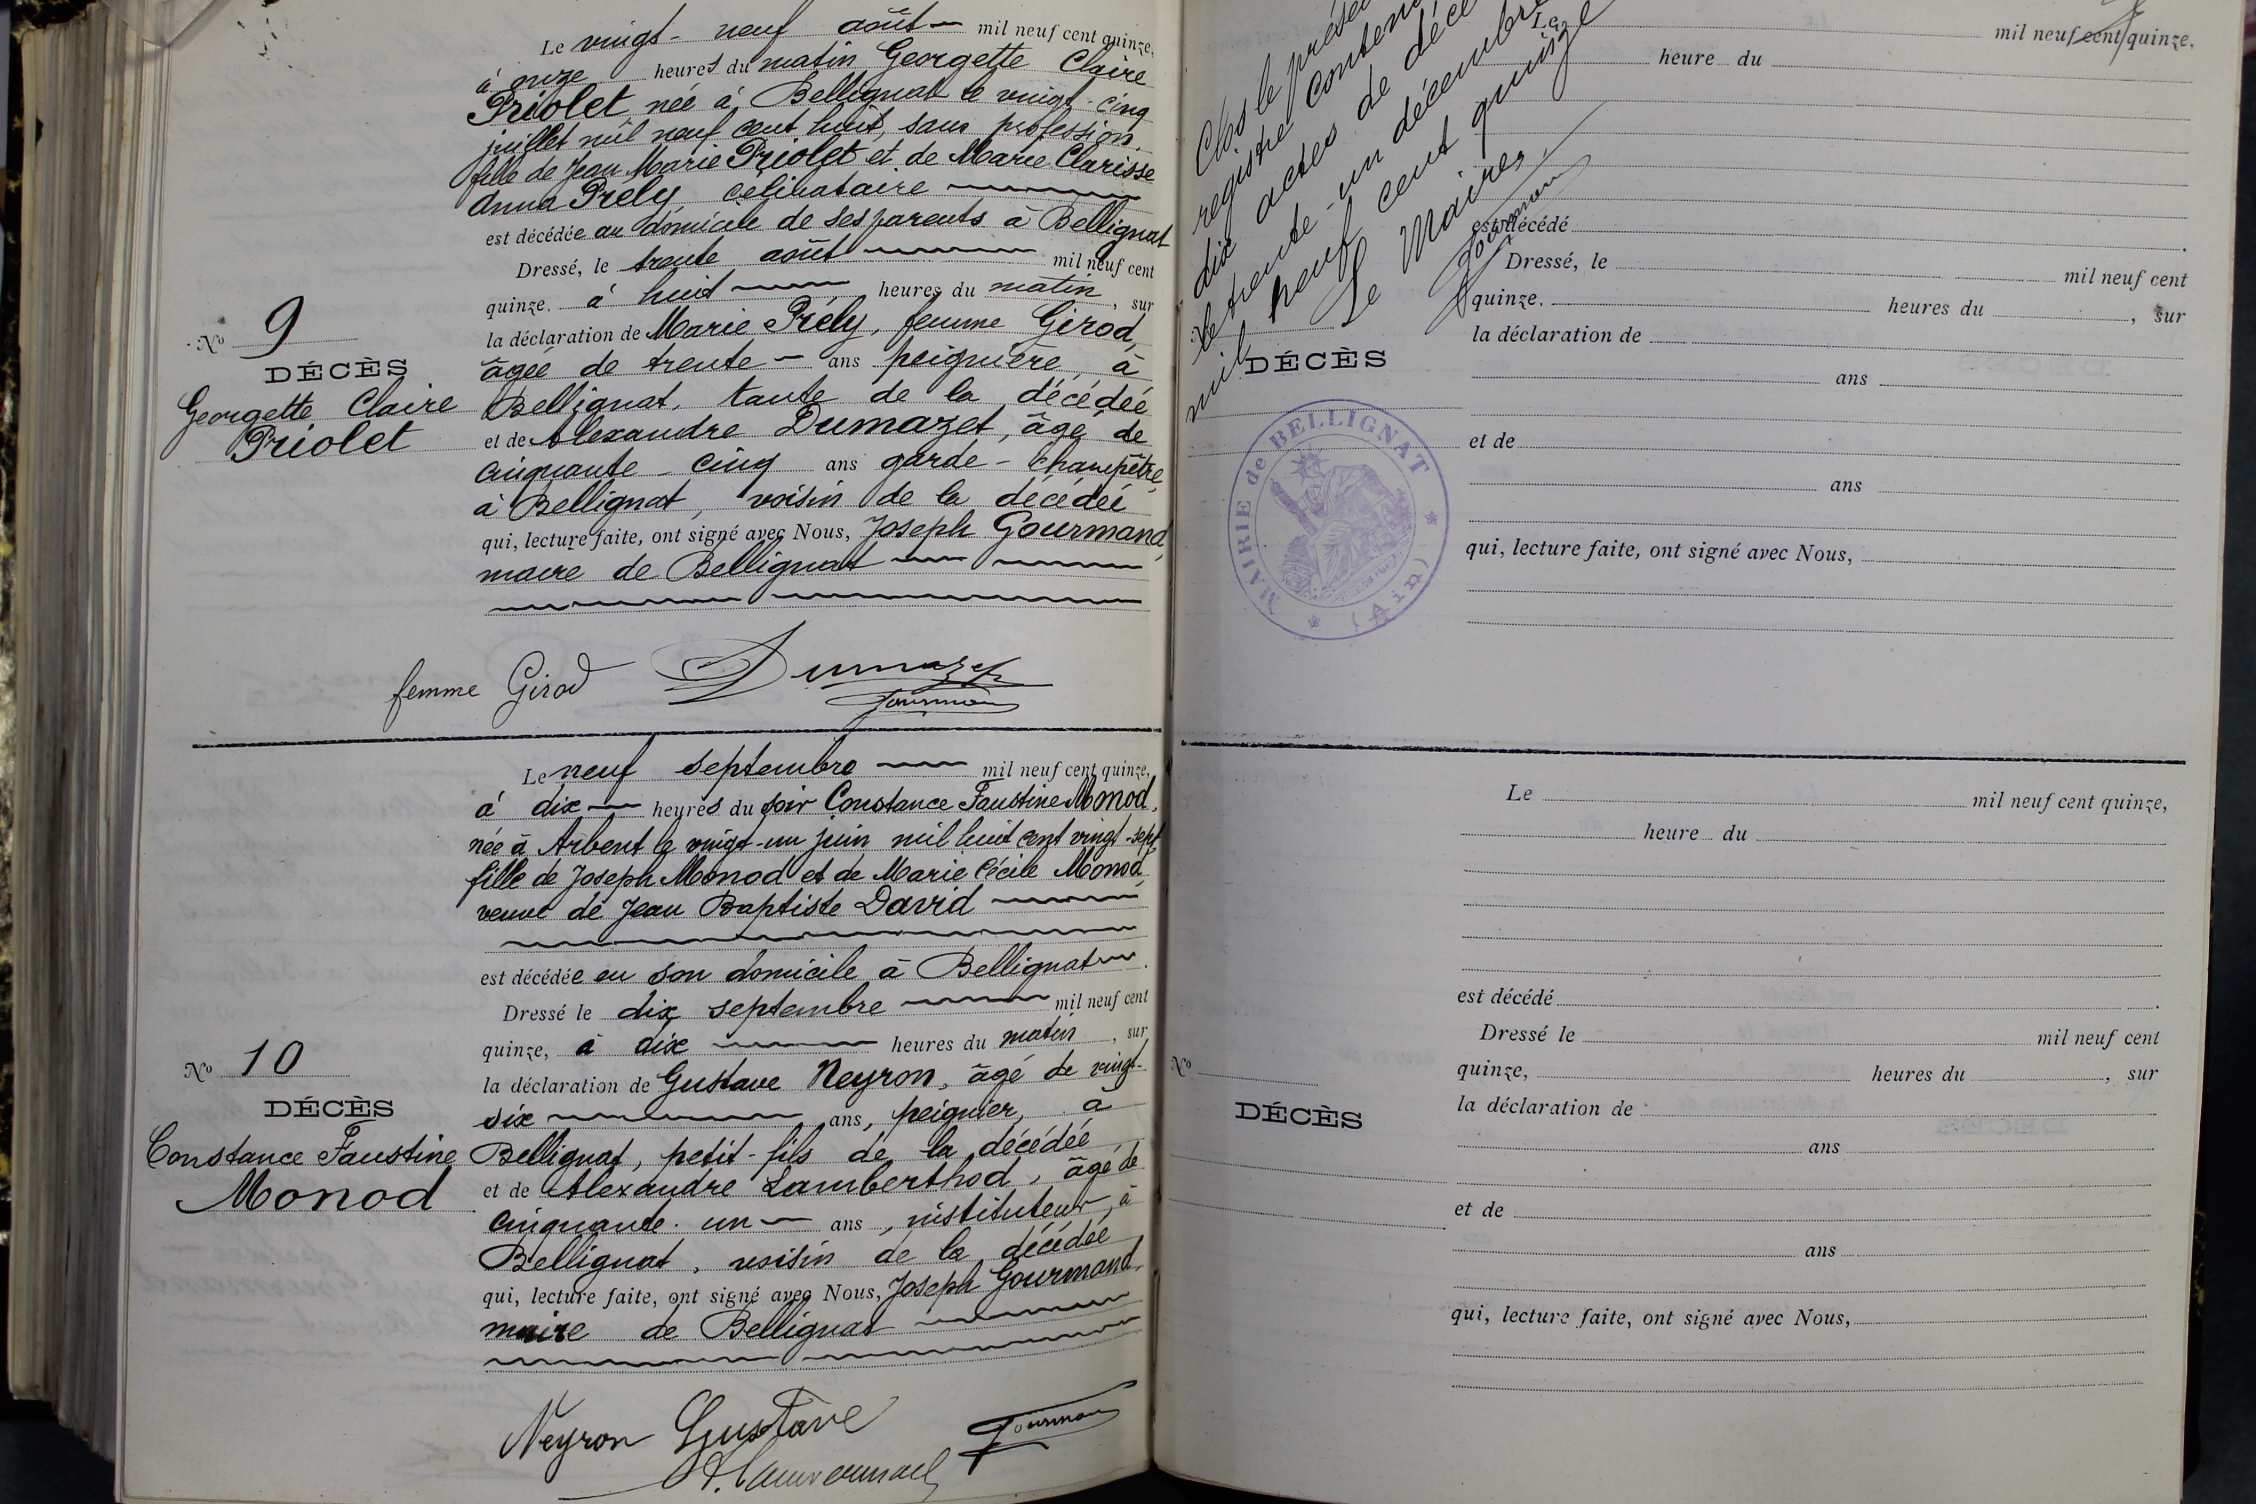 Le vingt-neuf août mil neuf cent quinze,
à onze heures du matin Georgette Claire
Priolet, née à Bellignat le vingt-cinq
juillet mil neuf cent huit, sans profession,
fille de Jean Marie Priolet et de Marie Clarisse
Anna Prély, célibataire
est décédée au domicile de ses parents à Bellignat
Dressé, le trente août mil neuf cent
quinze. à huit heures du matin, sur
la déclaration de Marie Prély, femme Girod,
âgée de trente ans peignière, à
Bellignat, tante de la décédée
et de Alexandre Dumazet, âgé de
cinquante-cinq ans garde-champêtre,
à Bellignat, voisin de la décédée
qui, lecture faite, ont signé avec Nous, Joseph Gourmand,
maire de Bellignat
No 9
DÉCÈS
Georgette Claire
Priolet
femme Girod Dumazet
Gourmand
Le neuf septembre mil neuf cent quinze,
à dix heures du soir Constance Faustine Monod,
née à Arbent le vingt-un juin mil huit cent vingt-sept,
fille de Joseph Monod et de Marie Cécile Monod,
veuve de Jean Baptiste David
est décédée en son domicile à Bellignat
Dressé le dix septembre mil neuf cent
quinze, à dix heures du matin, sur
la déclaration de Gustave Neyron, âgé de vingt-
six ans, peignier, à
Bellignat, petit-fils de la décédée,
et de Alexandre Lamberthod, âgé de
cinquante-un ans, instituteur, à
Bellignat, voisin de la décédée
qui, lecture faite, ont signé avec Nous, Joseph Gourmand,
maire de Bellignat
No 10
DÉCÈS
Constance Faustine
Monod
Neyron Gustave
Gourmand
Clos le présent
registre contenant
dix actes de décès
le trente-un décembre
mil neuf cent quinze
Le Maire,
Gourmand
Le mil neuf cent quinze,
heure du
est décédé
Dressé, le mil neuf cent
quinze. heures du , sur
la déclaration de
ans
et de
ans
qui, lecture faite, ont signé avec Nous,
No
DÉCÈS
MAIRIE de BELLIGNAT
(Ain)
Le mil neuf cent quinze,
heure du
est décédé
Dressé le mil neuf cent
quinze, heures du , sur
la déclaration de
ans
et de
ans
qui, lecture faite, ont signé avec Nous,
No
DÉCÈS